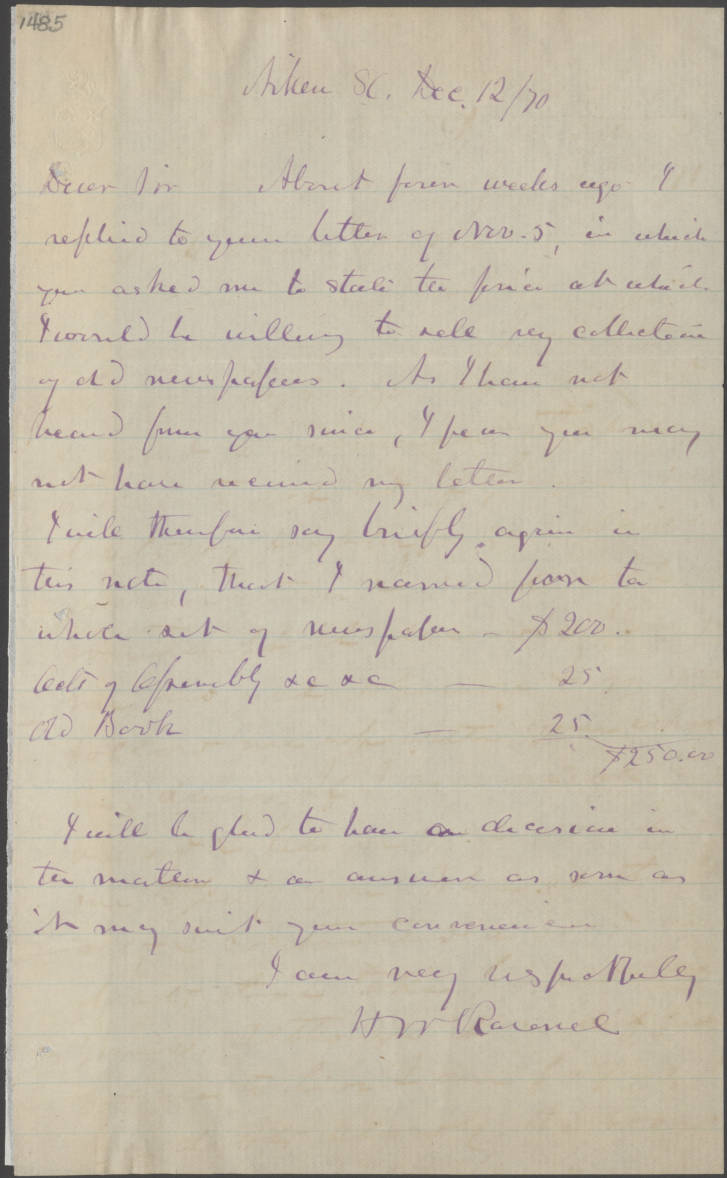 1485
Aiken SC. Dec. 12/70
Dear Sir About four weeks ago I
replied to your letter of Nov. 5, in which
you asked me to state the price at which
I would be willing to sell my collection
of old newspapers. As I have not
heard from you since, I fear you may
not have received my letter.
I will therefore say briefly again in
this note, that I named for the
whole set of newspapers – $200.
Acts of Assembly &c &c — 25
Old Book — 25.
$250.00
I will be glad to have a decision in
the matter & an answer as soon as
it may suit your convenience
I am very respectfully
H W Ravenel